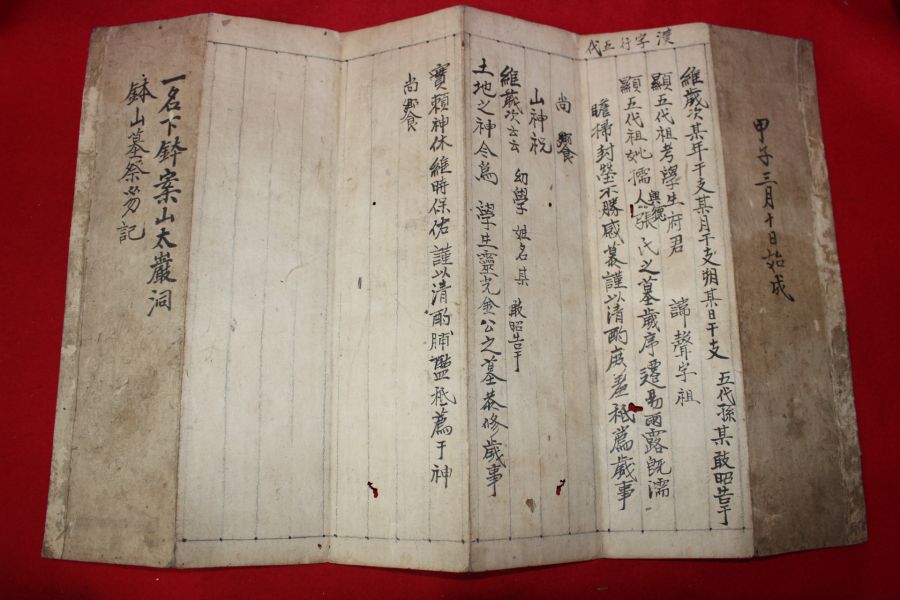 甲子三月十日始成
漢字行五代
維歲次某年干支某月干支朔某日干支 五代孫某敢昭告于
顯五代祖考學生府君 諱聲字祖
顯五代祖妣孺人興德張氏之墓歲序遷易雨露旣濡
瞻掃封塋不勝感慕謹以清酌庶羞祗薦歲事
尚饗
山神祝
維歲次云云 幼學 姓名某 敢昭告于
土地之神今爲 學生靈光金公之墓恭修歲事
寶賴神休維時保佑謹以清酌脯醢祗薦于神
尚饗
一名下鉢案山太巖洞
鉢山墓祭笏記